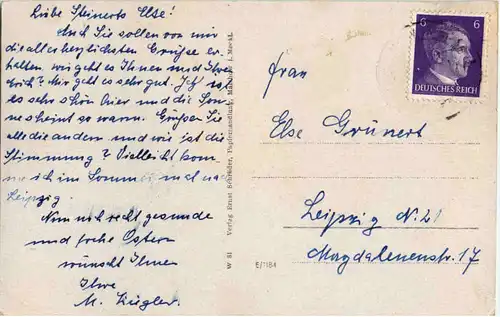 Liebe Steinerts Else!
Auch Sie sollen von mir
die allerherzlichsten Grüsse er-
halten, wie geht es Ihnen und Ihre
Erich? Mir geht es sehr gut. Ich ist
es sehr schön hier und die Son-
ne scheint so warm. Grüssen Sie
alle die andern und wie ist die
Stimmung? Vielleicht kom-
me ich im Sommer mal nach
Leipzig.
Nun noch recht gesunde
und frohe Ostern
wünscht Ihnen
Ihre
M. Ziegler.
W 51 Verlag Ernst Schröder, Papierhandlung, i. Meckl.
E/1184
6 6
DEUTSCHES REICH
Frau
Else Grünert
Leipzig N. 21
Magdalenenstr. 17